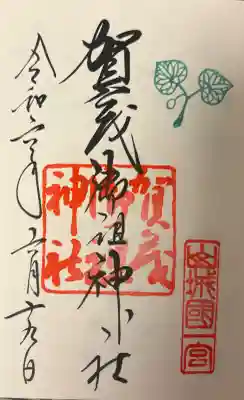 山城國一宮
賀茂御祖神社
賀茂御祖神社
令和六年五月十九日